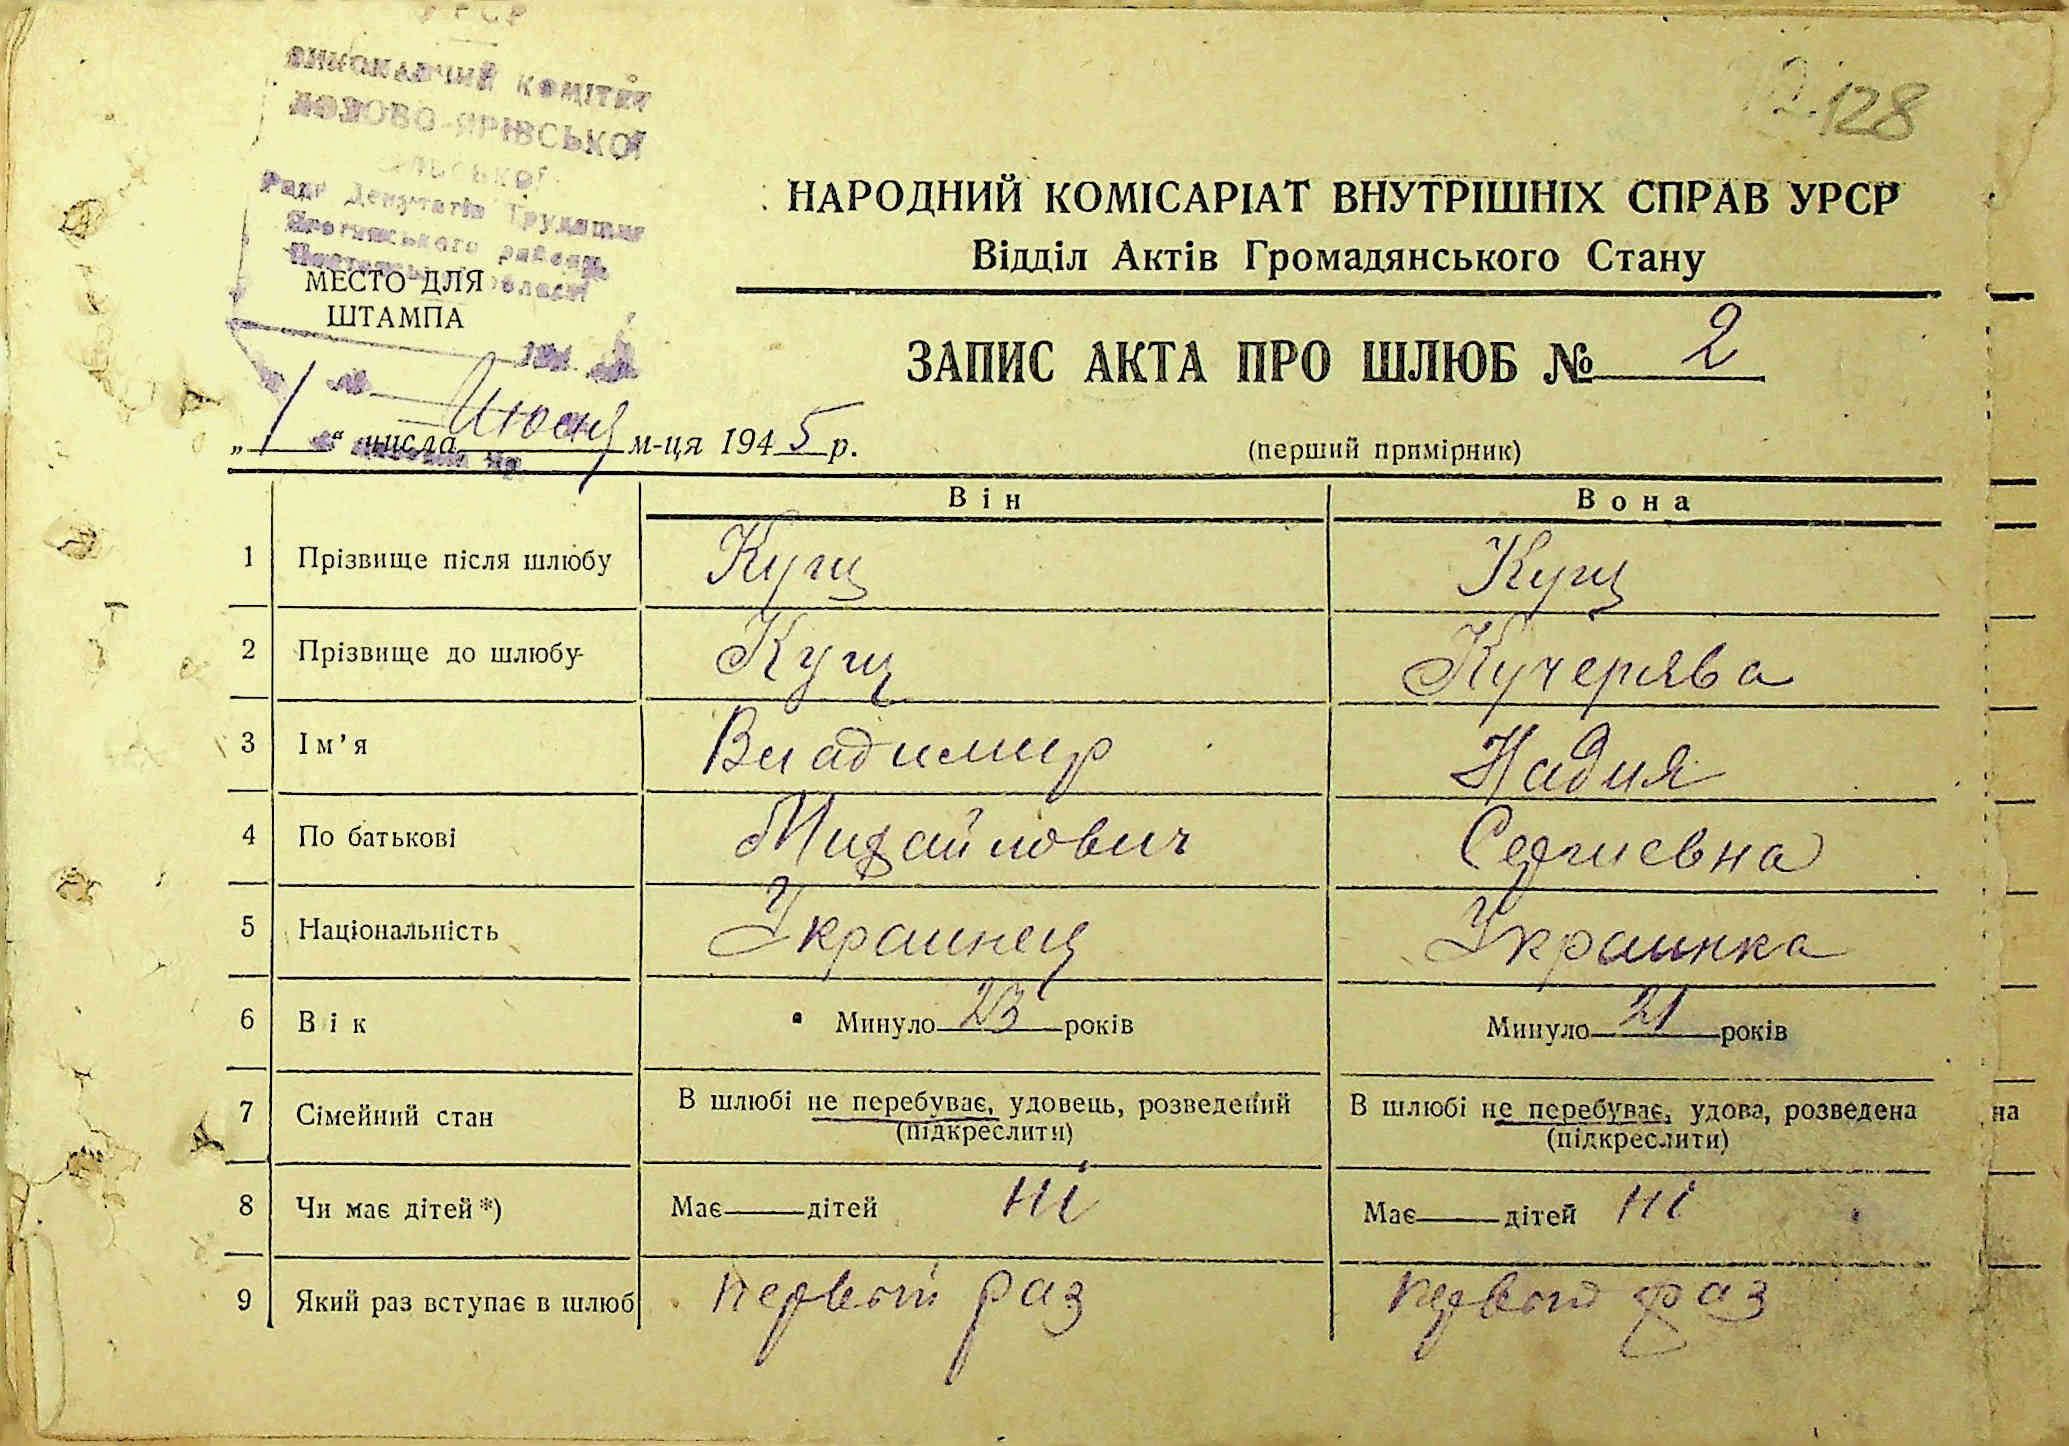 УРСР
ВИКОНАВЧИЙ КОМІТЕТ
ЛОЗОВО-ЯРІВСЬКОЇ
СІЛЬСЬКОЇ
Ради Депутатів Трудящих
Яготинського району
Полтавської області
128
НАРОДНИЙ КОМІСАРІАТ ВНУТРІШНІХ СПРАВ УРСР
Відділ Актів Громадянського Стану
МЕСТО ДЛЯ
ШТАМПА
194
ЗАПИС АКТА ПРО ШЛЮБ № 2
„1“ числа Июня м-ця 1945 р.
(перший примірник)
Він Вона
1 Прізвище після шлюбу Кущ Кущ
2 Прізвище до шлюбу Кущ Кучерява
3 Ім’я Владимир Надия
4 По батькові Михайлович Сергиевна
5 Національність Украинец Украинка
6 Вік Минуло 23 років Минуло 21 років
7 Сімейний стан В шлюбі не перебуває, удовець, розведений В шлюбі не перебуває, удова, розведена на
(підкреслити) (підкреслити)
8 Чи має дітей*) Має дітей ні Має дітей ні
9 Який раз вступає в шлюб первый раз первый раз